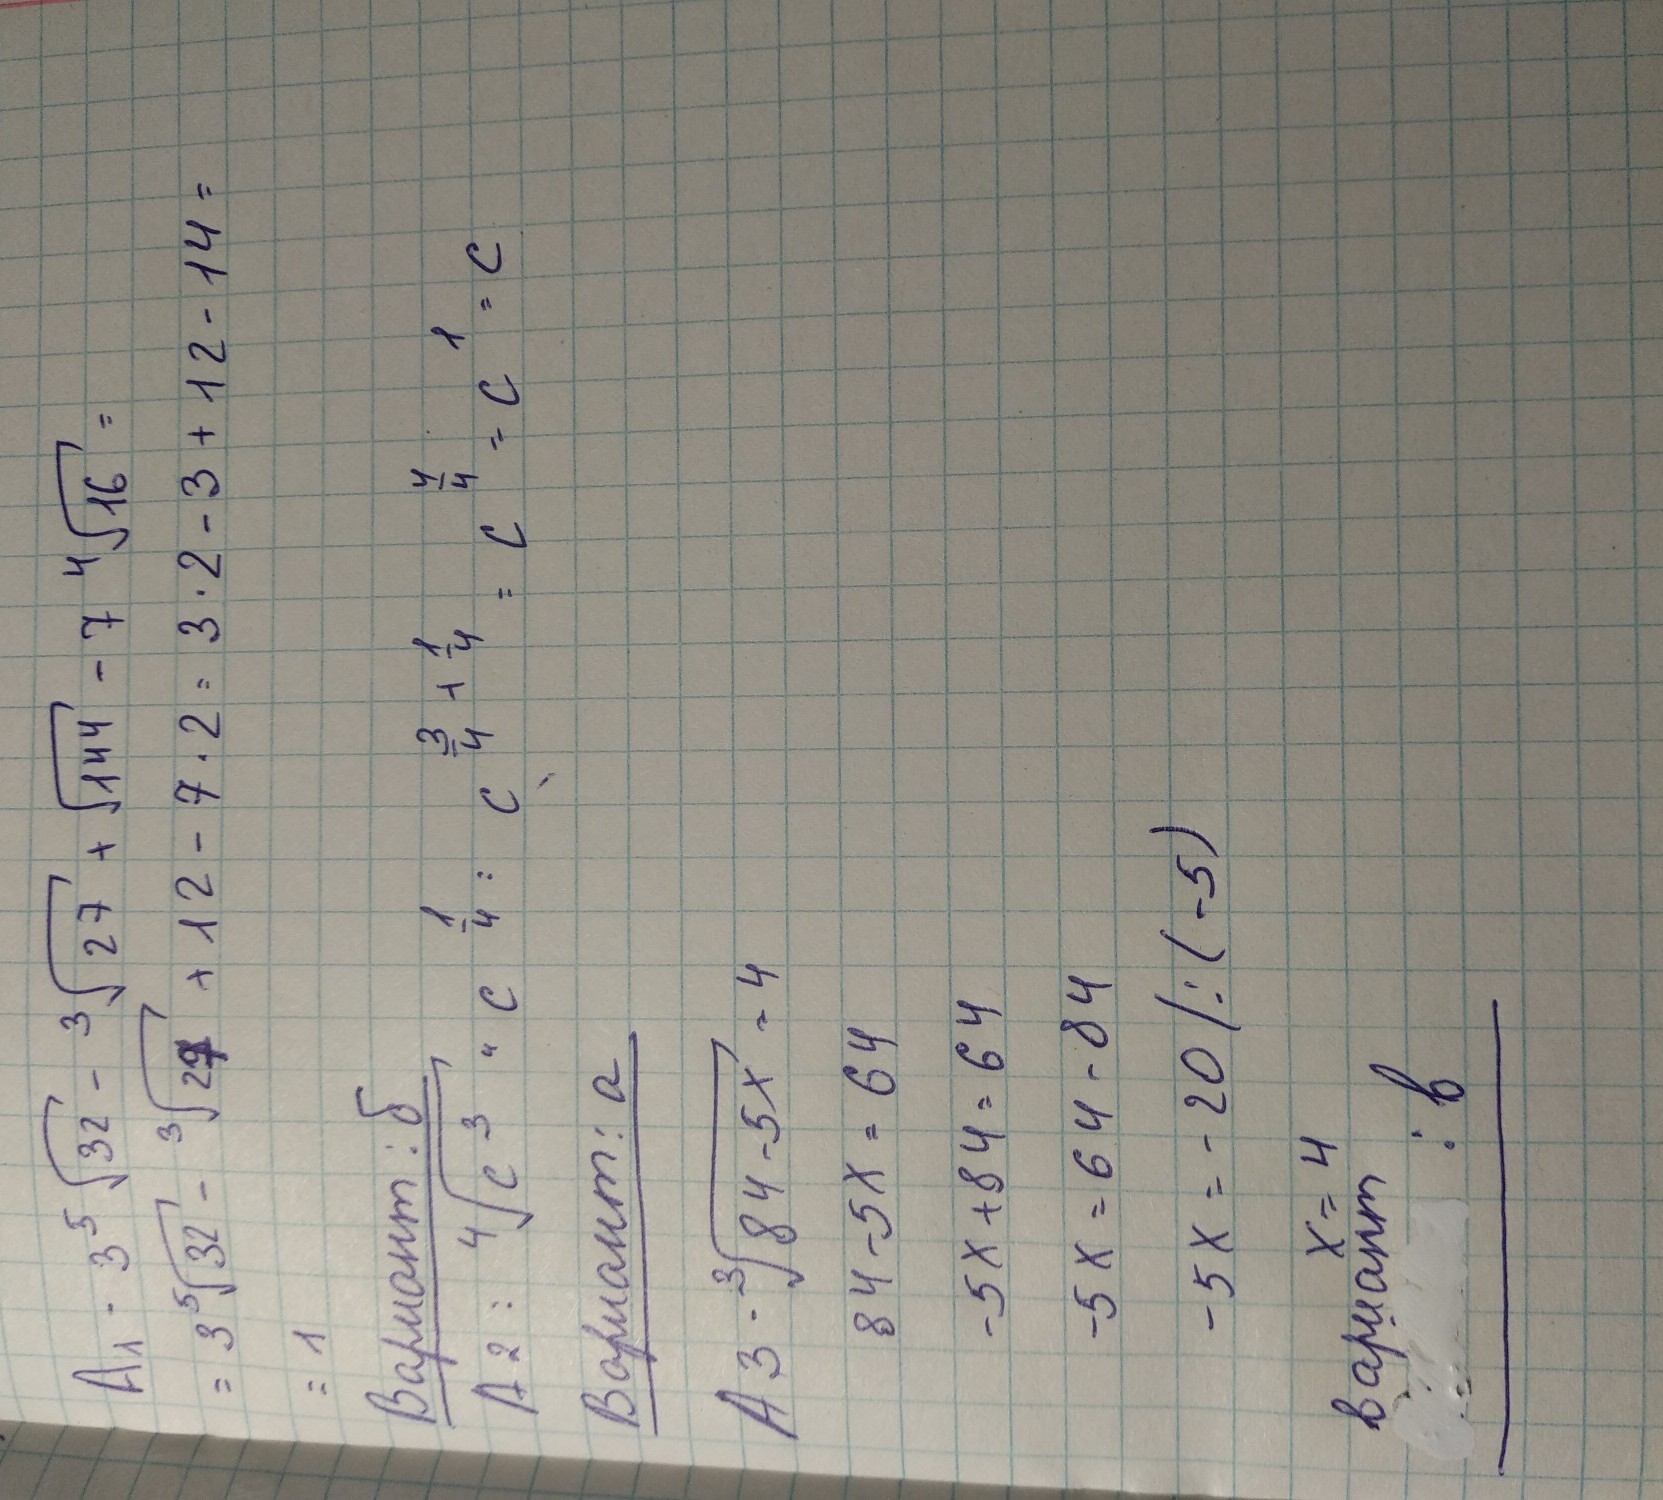 А1. 3⁵√32 - ³√27 + √144 - 7 ⁴√16 =
= 3⁵√32 - ³√27 + 12 - 7 · 2 = 3 · 2 - 3 + 12 - 14 =
= 1
Вариант: б
А2: ⁴√c³ · c^(1/4) = c^(3/4 + 1/4) = c^(4/4) = c¹ = c
Вариант: а
А3. ³√(84 - 5x) = 4
84 - 5x = 64
-5x + 84 = 64
-5x = 64 - 84
-5x = -20 /: (-5)
x = 4
вариант : в